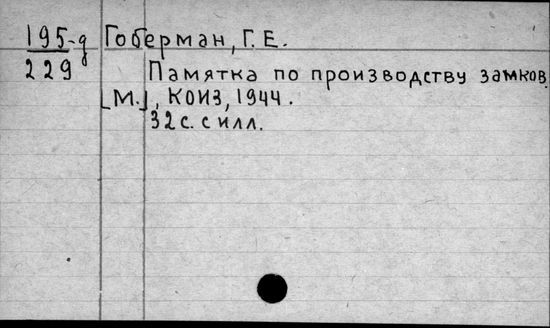 195-д Гоберман, Г. Е.
229
Памятка по производству замков.
[М.], КОИЗ, 1944.
32 с. с илл.